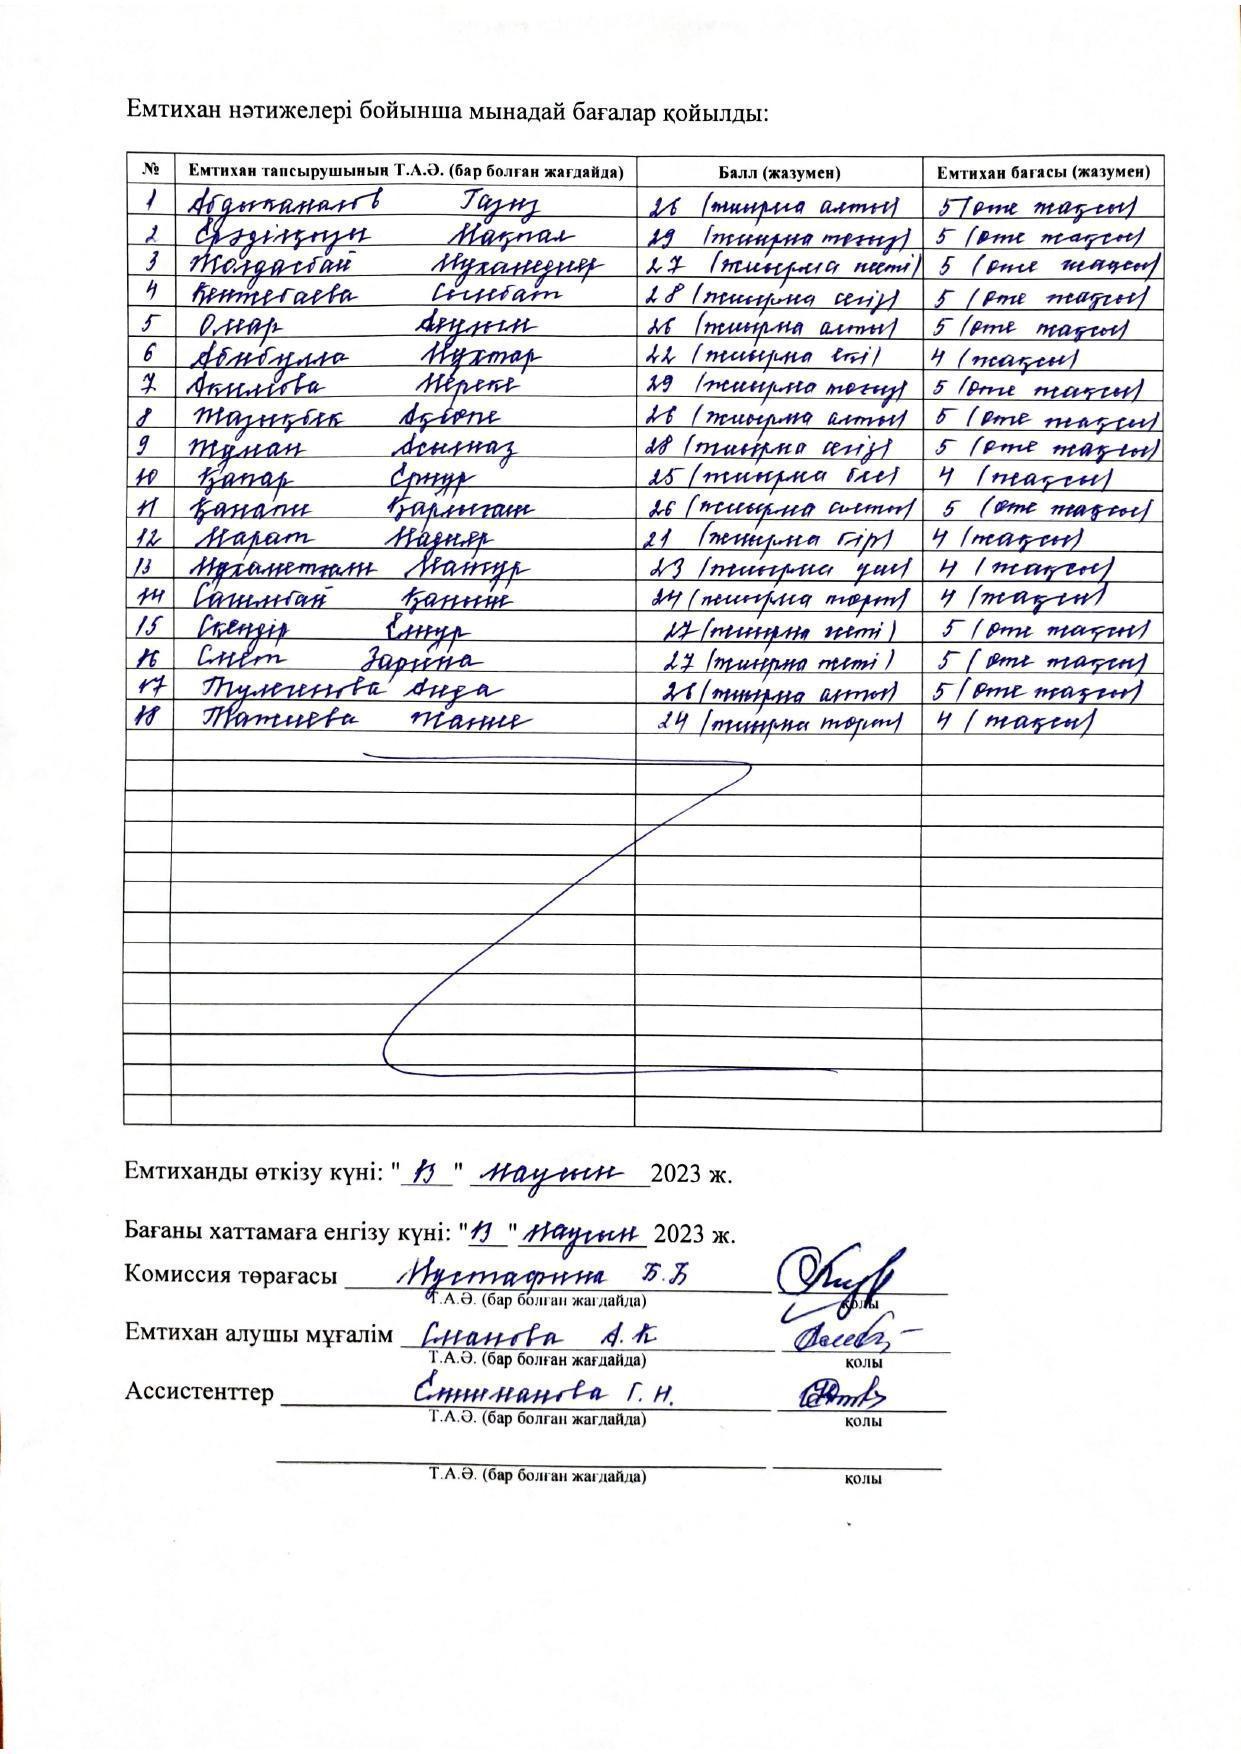 Емтихан нәтижелері бойынша мынадай бағалар қойылды:
№ Емтихан тапсырушының Т.А.Ә. (бар болған жағдайда) Балл (жазумен) Емтихан бағасы (жазумен)
1 Абдыканалов Газиз 26 (жиырма алты) 5 (өте жақсы)
2 Ерәділқызы Мақпал 29 (жиырма тоғыз) 5 (өте жақсы)
3 Жолдасбай Мұхамедияр 27 (жиырма жеті) 5 (өте жақсы)
4 Кентебаева Сымбат 28 (жиырма сегіз) 5 (өте жақсы)
5 Омар 26 (жиырма алты) 5 (өте жақсы)
6 Абибулла Мұхтар 22 (жиырма екі) 4 (жақсы)
7 Акимова Мереке 29 (жиырма тоғыз) 5 (өте жақсы)
8 Жазықбек Ақбөпе 26 (жиырма алты) 5 (өте жақсы)
9 Жұман Асылназ 28 (жиырма сегіз) 5 (өте жақсы)
10 Қапар Ернұр 25 (жиырма бес) 4 (жақсы)
11 Қанапи Қарлығаш 26 (жиырма алты) 5 (өте жақсы)
12 Марат Мадияр 21 (жиырма бір) 4 (жақсы)
13 23 (жиырма үш) 4 (жақсы)
14 Сашыбай Қаныш 24 (жиырма төрт) 4 (жақсы)
15 Скендір Елнұр 27 (жиырма жеті) 5 (өте жақсы)
16 Смет Зарина 27 (жиырма жеті) 5 (өте жақсы)
17 Тулегенова Аида 26 (жиырма алты) 5 (өте жақсы)
18 Тажиева 24 (жиырма төрт) 4 (жақсы)
Емтиханды өткізу күні: "13" маусым 2023 ж.
Бағаны хаттамаға енгізу күні: "13" маусым 2023 ж.
Комиссия төрағасы Мустафина Б.Б
Т.А.Ә. (бар болған жағдайда) қолы
Емтихан алушы мұғалім Сманова А.К
Т.А.Ә. (бар болған жағдайда) қолы
Ассистенттер Ешманова Г.Н.
Т.А.Ә. (бар болған жағдайда) қолы
Т.А.Ә. (бар болған жағдайда) қолы